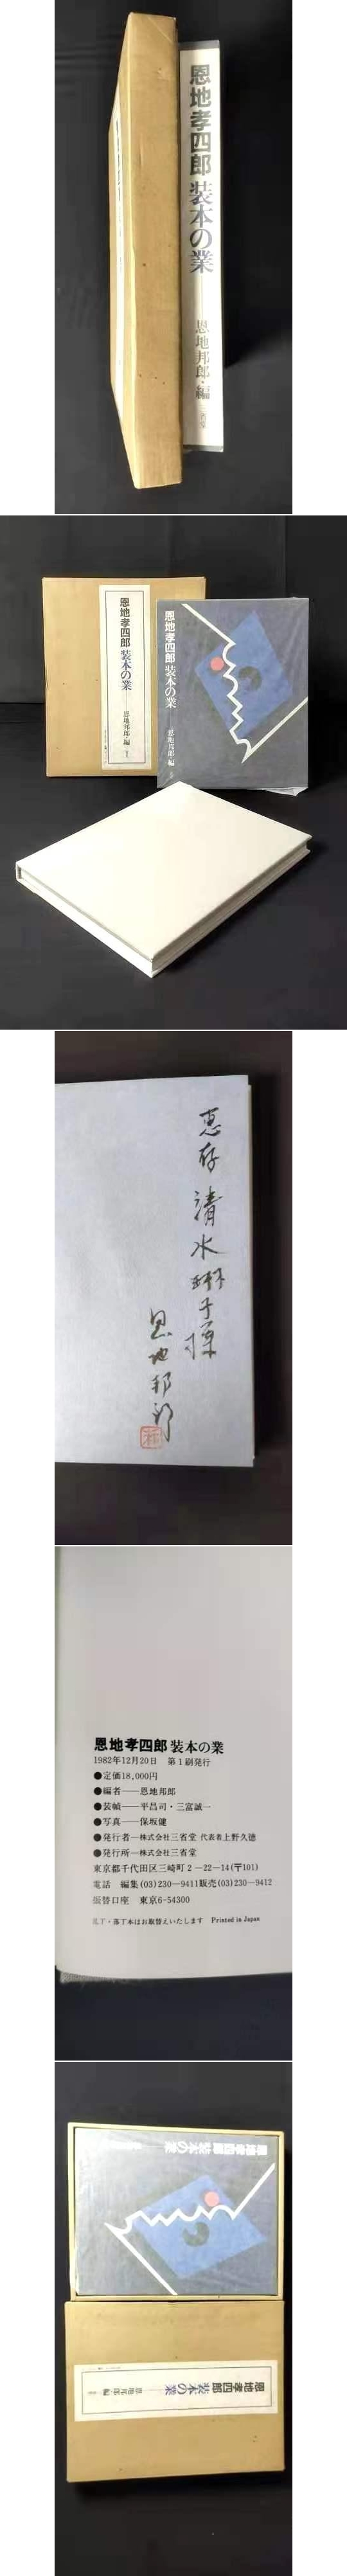 恩地孝四郎 装本の業
恩地邦郎・編 三省堂
恩地孝四郎 装本の業
恩地邦郎・編
恩地孝四郎 装本の業
恩地邦郎・編
恵存
清水
子様
恩地邦郎
恩地孝四郎 装本の業
1982年12月20日 第1刷発行
●定価18,000円
●編者──恩地邦郎
●装幀──平昌司・三富誠一
●写真──保坂健
●発行者─株式会社三省堂 代表者上野久徳
●発行所─株式会社三省堂
東京都千代田区三崎町2－22－14(〒101)
電話 編集(03)230－9411販売(03)230－9412
振替口座 東京6-54300
乱丁・落丁本はお取替えいたします Printed in Japan
恩地孝四郎 装本の業
恩地孝四郎 装本の業
恩地邦郎・編